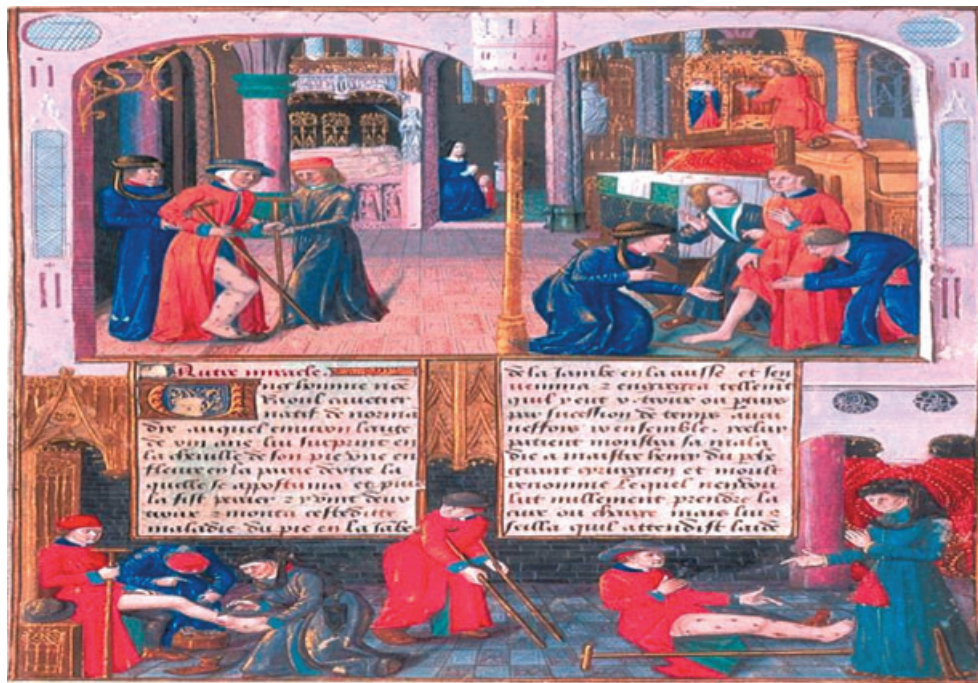 Autre miracle
homme
Raoul
natif de norma
die auquel enuiron laage
de ans lui suruint en
la cheuille de son pie vne en
fleure en la partie la
quelle se appostuma et puis
la fist percer z y vint deux
traux z monta
maladie du pie en la Iabe
de la Iambe en la cuisse et sen
uenima z engregea
quil y eut v. traux ou plaies
par succession de temps
ensemble. Icelui
patient monstra sa mala
die a maistre henry du
grant cyrurgien et moult
renomme lequel nen vou
lut nullement prendre la
cure ou charge mais lui
seilla quil attendist laide